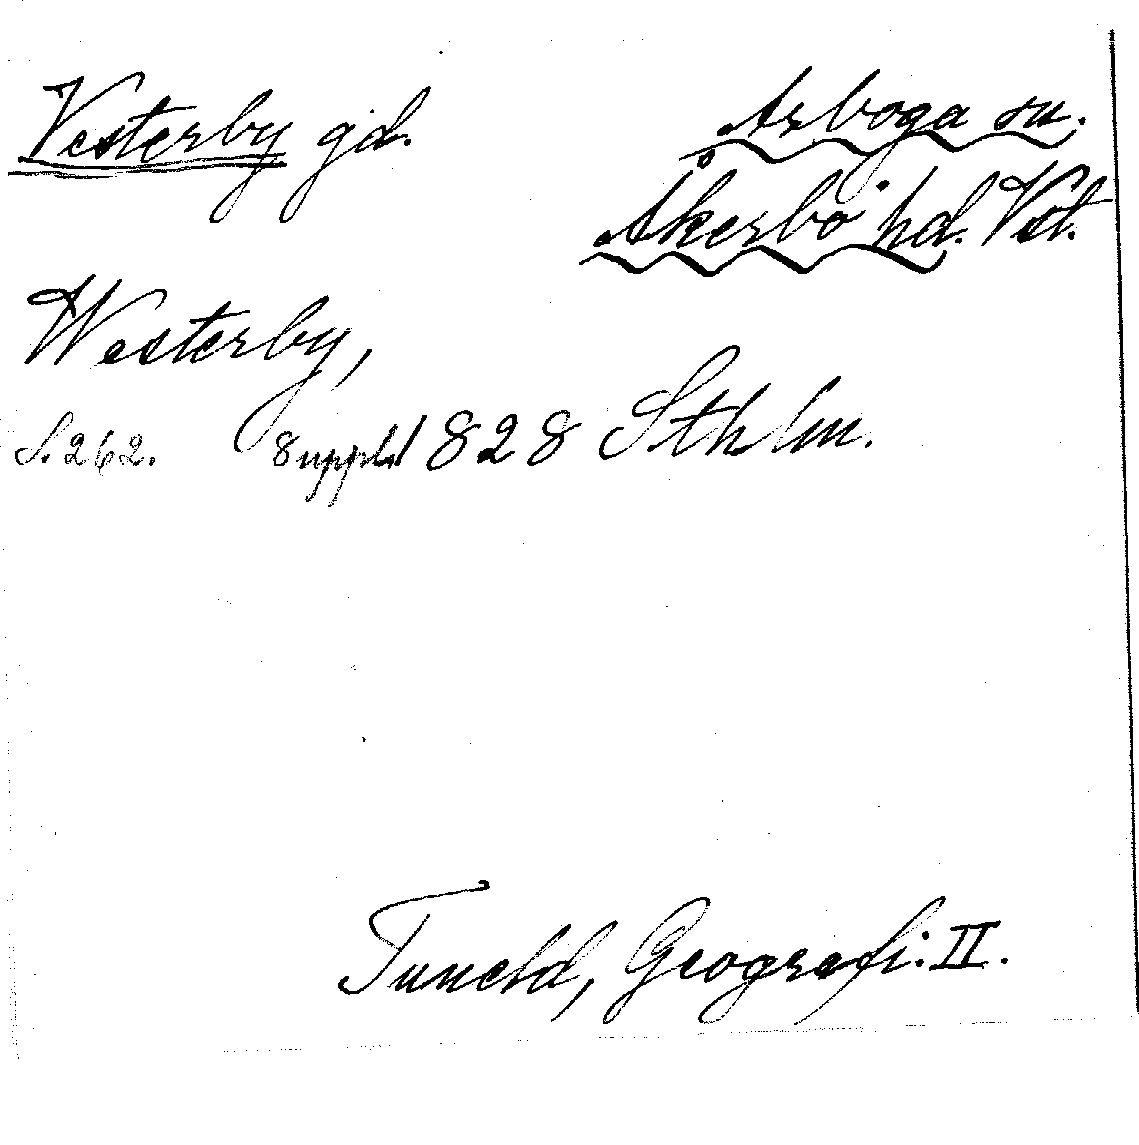 Vesterby gd.
Arboga sn.
Åkerbo hd. Vstl.
Westerby,
S. 262. Suppl. 1828 Sthlm.
Tuneld, Geografi. II.